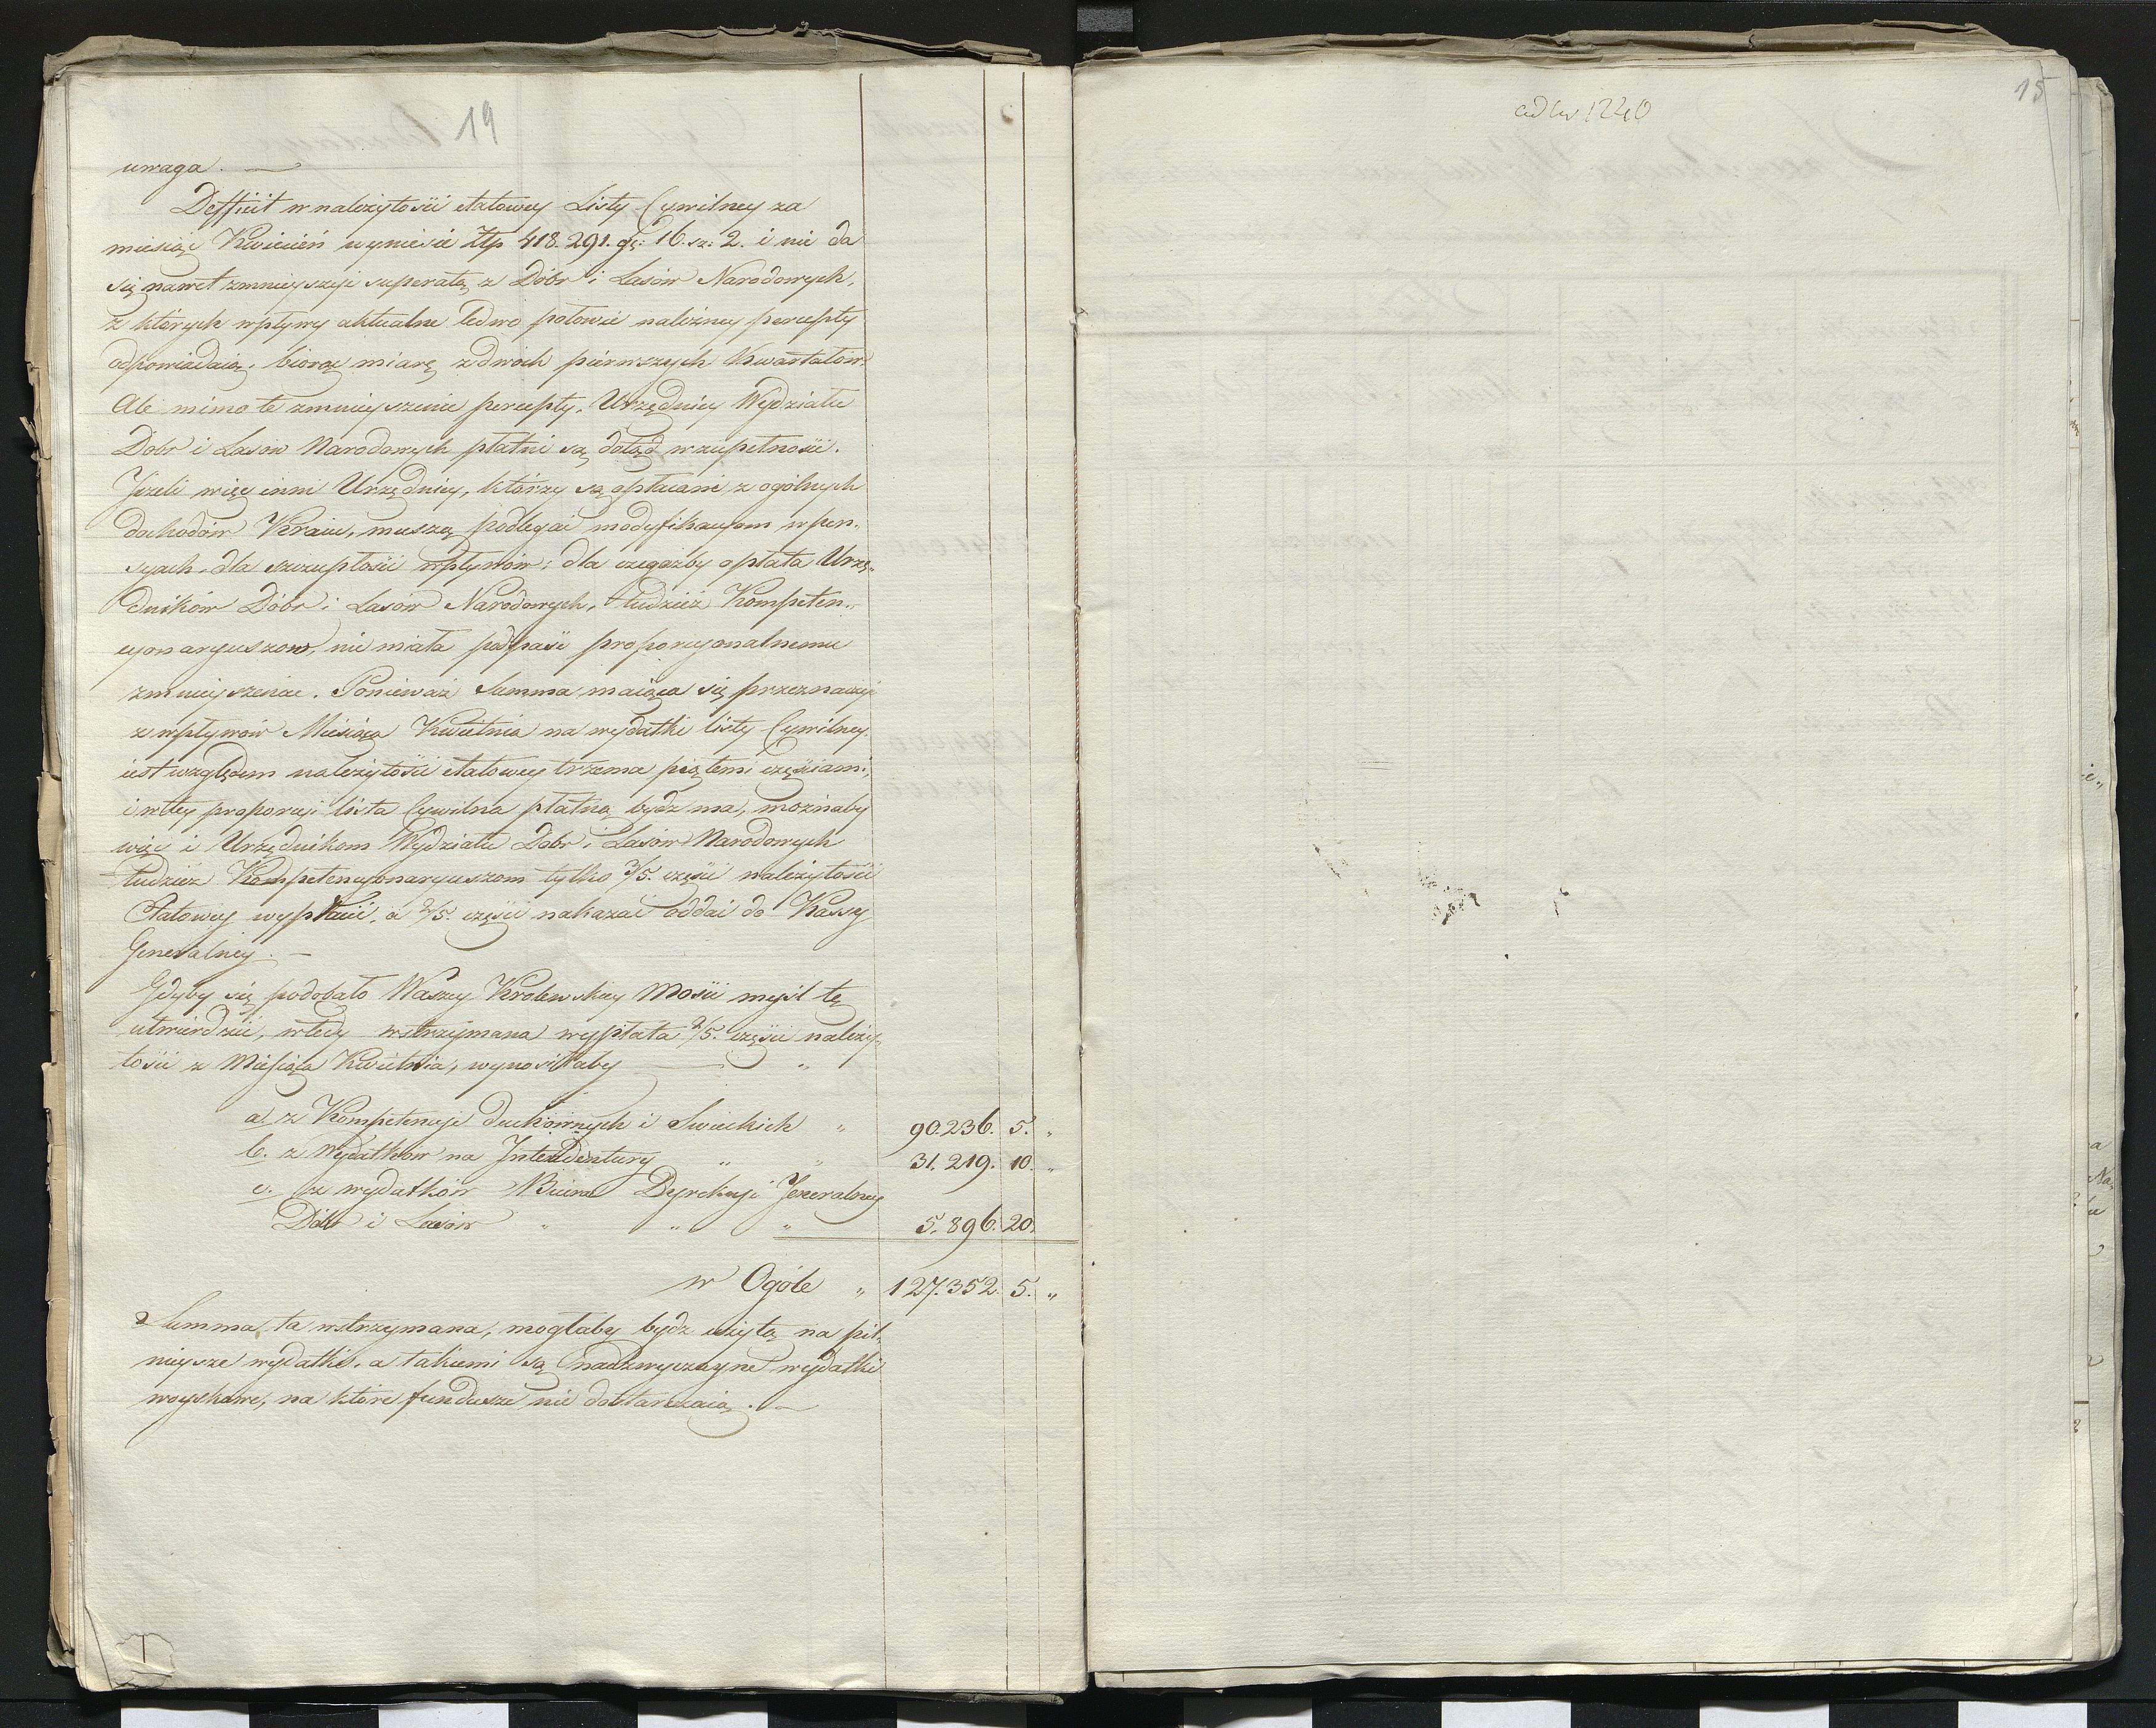 19
uwaga. —
Deffict w należytości etatowey Listy Cywilney za
miesiąc Kwiecień wyniesie Złp 418.291. gr: 16. sz: 2. i nie da
się nawet zmnieyszyć superatą z Dóbr i Lasów Narodowych,
z których wpływy aktualne ledwo połowie należney percepty
odpowiadaią, biorąc miarę z dwóch pierwszych Kwartałów.
Ale mimo te zmnieyszenie percepty, Urzędnicy Wydziału
Dobr i Lasow Narodowych płatni są dotąd w zupełności.
Jeżeli więc inni Urzędnicy, którzy są opłacani z ogólnych
dochodów Kraiu, muszą podlegać modyfikacyom w pen„
syach, dla szczupłości wpływów; dla czegożby opłata Urzę„
dników Dóbr i Lasów Narodowych, tudzież Kompeten„
cyonaryuszow, nie miała podpaść proporcyonalnemu
zmnieyszeniu. Ponieważ Summa maiąca się przeznaczyć
z wpływów Miesiąca Kwietnia na wydatki listy Cywilney
iest względem należytości etatowey trzema piątemi częściami,
i w tey proporcyi lista Cywilna płatną bydź ma, możnaby
więc i Urzędnikom Wydziału Dobr i Lasów Narodowych
tudzież Kompetencyonaryuszom tylko 3/5. części należytości
Etatowey wypłacić, a 2/5. części nakazać oddać do Kassy
Generalney. —
Gdyby się podobało Waszey Krolewskiey Mości myśl tę
utwierdzić, wtedy wstrzymana wypłata 2/5. części należy„
tości z Miesiąca Kwietnia, wynosiłaby — „
a. z Kompetencyi duchownych i Swieckich „ 90.236. 5. „
b. z Wydatków na Intendentury „ „ 31.219. 10. „
c. z wydatków Biura Dyrekcyi Jeneralney
Dóbr i Lasów „ „ „ 5.896. 20.
w Ogóle „ 127.352. 5. „
Summa ta wstrzymana, mogłaby bydź użytą na pil„
nieysze wydatki, a takiemi są nadzwyczayne wydatki
woyskowe, na które fundusze nie dostarczaią. —
15
ad N 1240